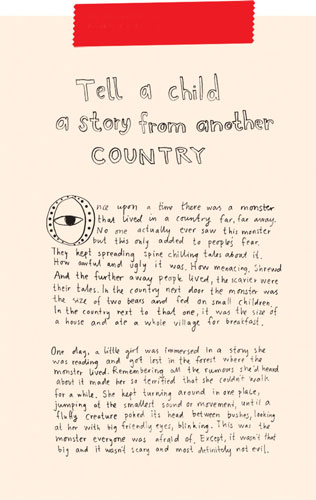 Tell a child
a story from another
COUNTRY
Once upon a time there was a monster
that lived in a country far, far away.
No one actually ever saw this monster
but this only added to people's fear.
They kept spreading spine chilling tales about it.
How awful and ugly it was. How menacing. Shrewd
And the further away people lived, the scarier were
their tales. In the country next door the monster was
the size of two bears and fed on small children.
In the country next to that one, it was the size of
a house and ate a whole village for breakfast.
One day, a little girl was immersed in a story she
was reading and got lost in the forest where the
monster lived. Remembering all the rumours she'd heard
about it made her so terrified that she couldn't walk
for a while. She kept turning around in one place,
jumping at the smallest sound or movement, until a
fluffy creature poked its head between bushes, looking
at her with big friendly eyes, blinking. This was the
monster everyone was afraid of. Except, it wasn't that
big and it wasn't scary and most definitely not evil.